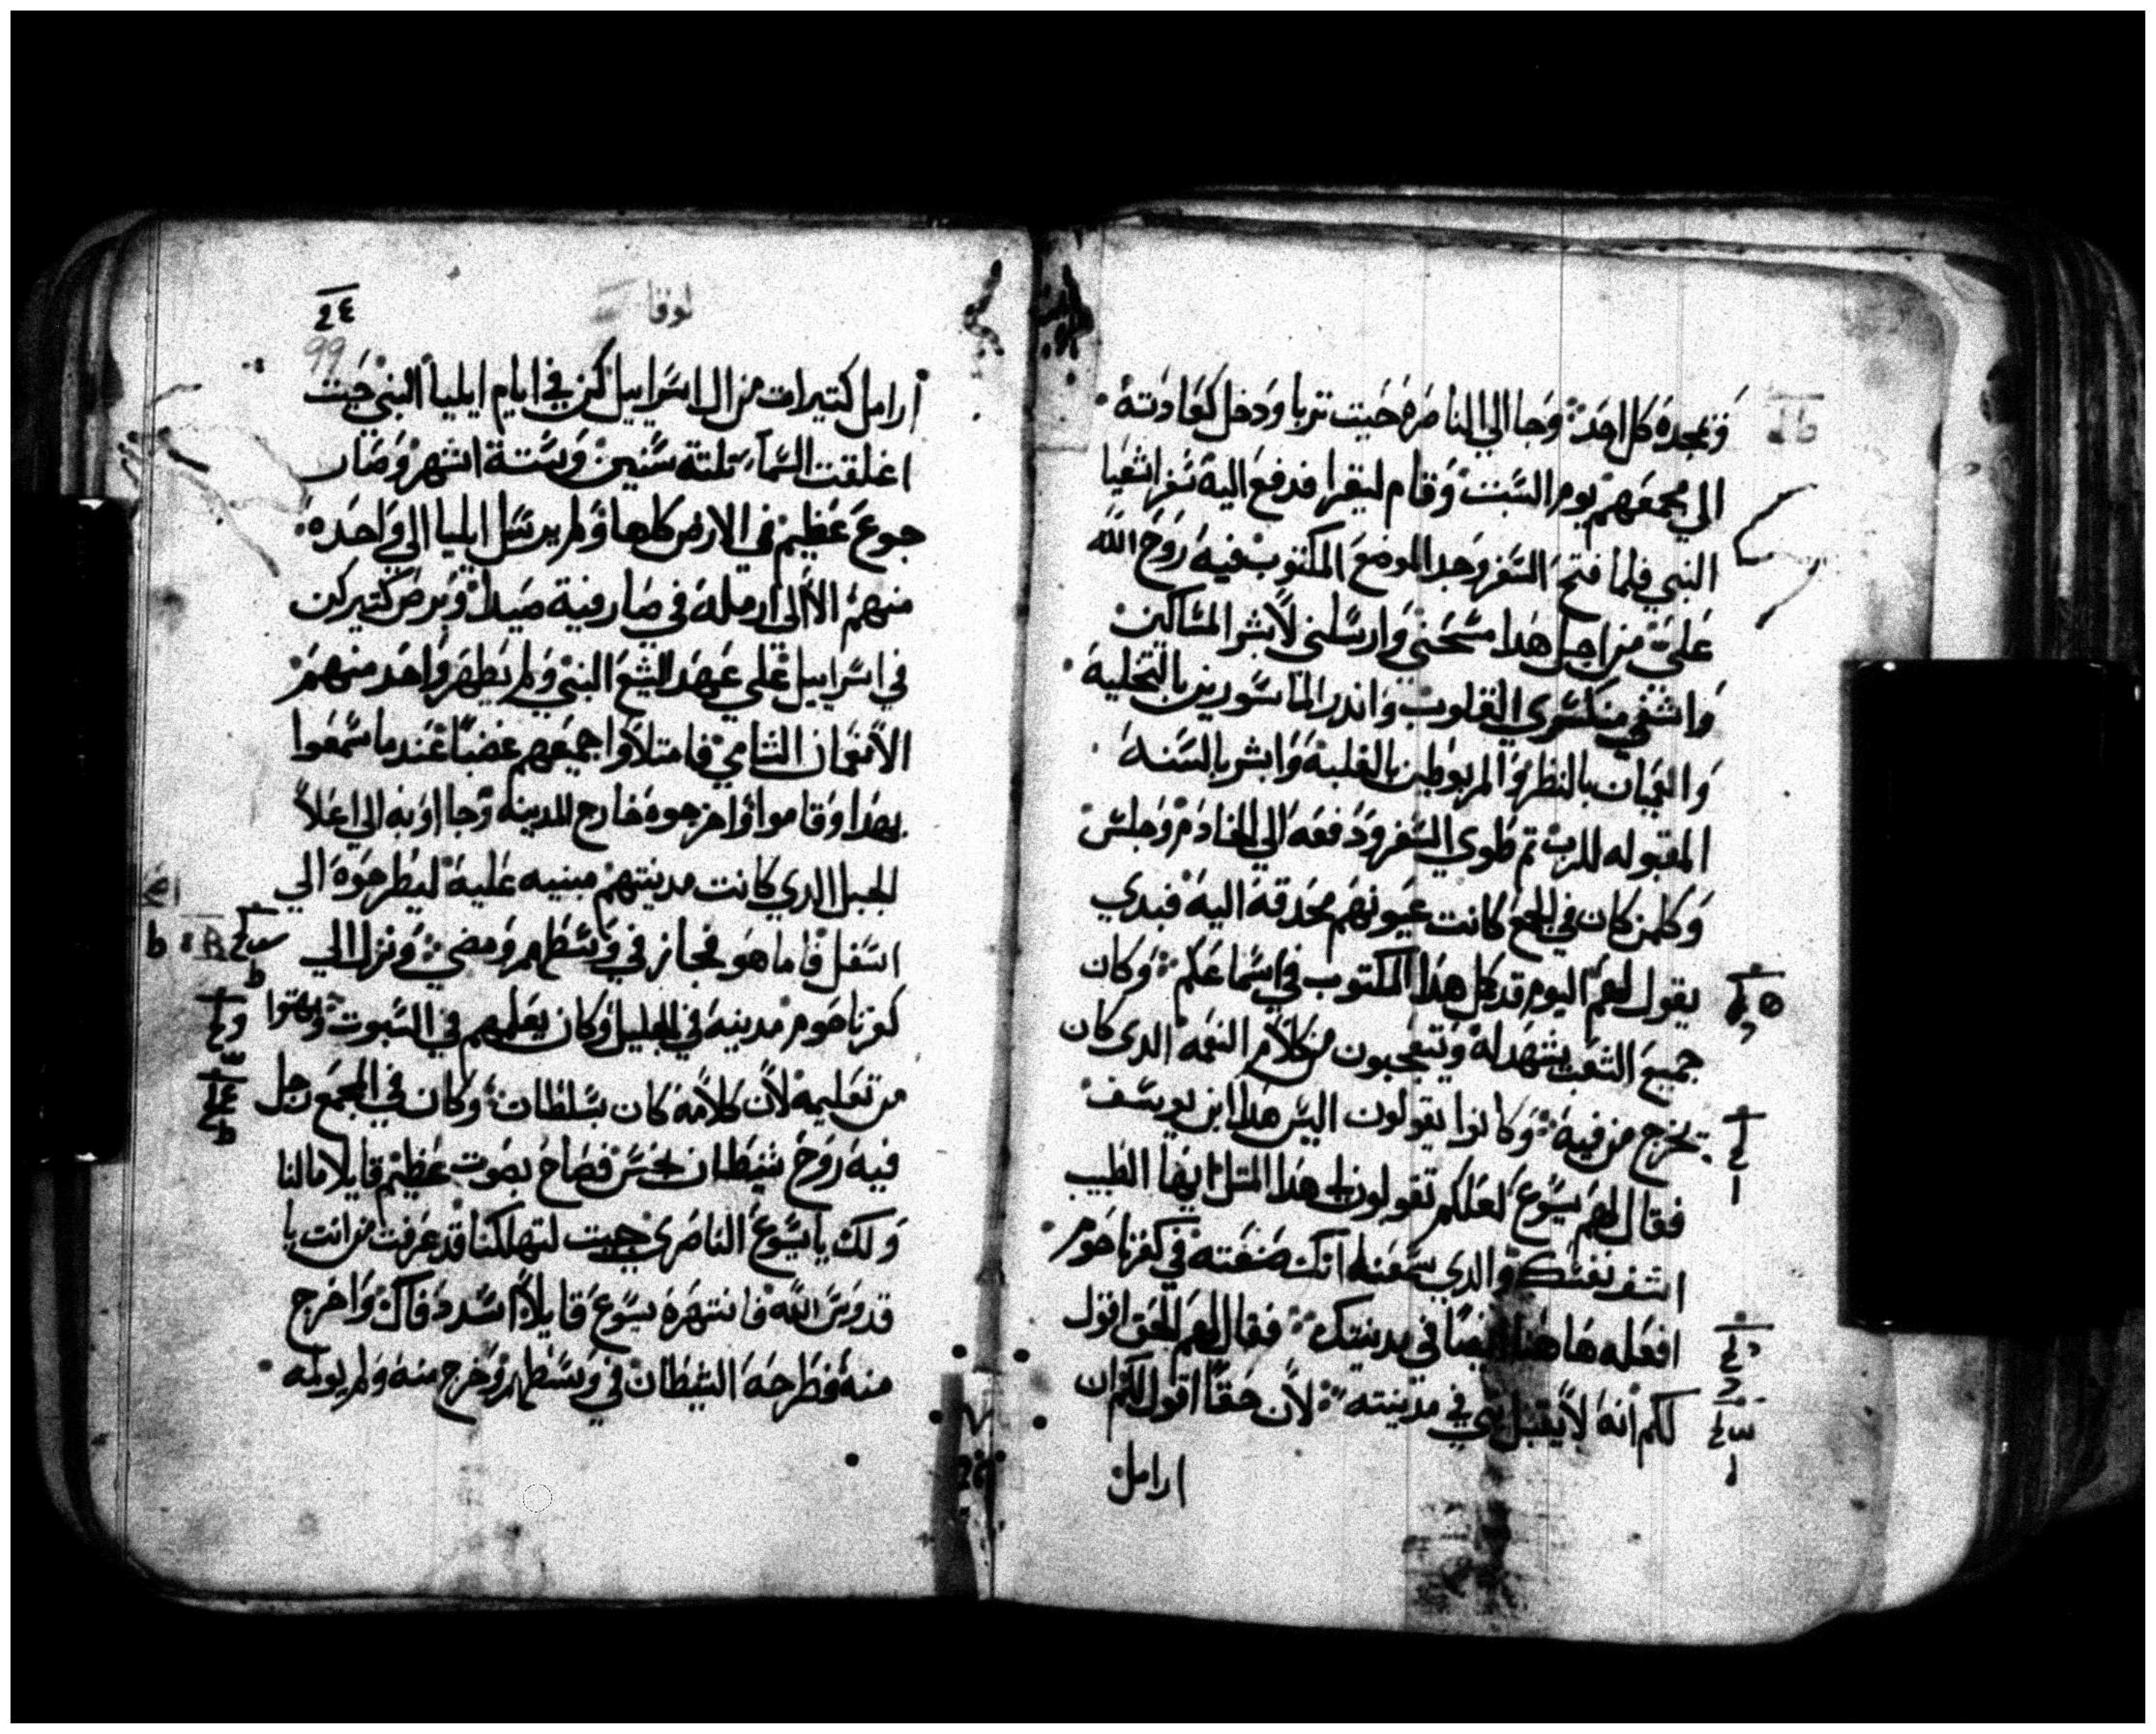 وتمجده كل احد وجا الي الناصره حيت تربا ودخل كعادته
الي مجمعهم يوم السبت وقام ليقرا فدفع اليه سفر اشعيا
النبي فلما فتح السفر وجد الموضع المكتوب فيه روح الله
علي من اجل هدا مسحني وارسلني لابشر المساكين
واشفي منكسري القلوب واندر الماسورين بالتخليه
والعميان بالنظر والمربوطين بالغلبه وابشر بالسنه
المقبوله للرب تم طوي السفر ودفعه الي الخادم وجلس
وكلمن كان في المجمع كانت عيونهم محدقه اليه فبدي
يقول لهم اليوم قد كمل هدا المكتوب في اسماعكم وكان
جميع الشعب يشهد له ويتعجبون من كلام النعمه الدي كان
يخرج من فيه وكانوا يقولون اليس هدا ابن يوسف
فقال لهم يسوع لعلكم تقولون لي هدا المتل ايها الطبيب
اشف نفسك والدي سمعنا انك صنعته في كفرناحوم
افعله هاهنا ايضا في مدينتك فقال لهم الحق اقول
لكم انه لا يقبل نبي في مدينته لان حقا اقول لكم ان
ارامل
لوقا
٢٤
99
ارامل كتيرات من ال اسراييل كن في ايام ايليا النبي حيت
اغلقت السما تلته سنين وستة اشهر وصار
جوع عظيم في الارض كلها ولم يرسل ايليا الي واحده
منهم الا الي ارمله في صارفية صيدا وبرص كتير كن
في اسراييل علي عهد اليشع النبي ولم يطهر واحد منهم
الا نعمان الشامي فامتلاوا جميعهم غضبا عند ما سمعوا
بهدا وقاموا واخرجوه خارج المدينه وجااوبه الي اعلا
الجبل الدي كانت مدينتهم مبنيه عليه ليطرحوه الي
اسفل فاما هو فجاز في وسطهم ومضي ونزل الي
كفرناحوم مدينه في الجليل وكان يعلمهم في السبوت وبهتوا
من تعليمه لان كلامه كان بسلطان وكان في المجمع رجل
فيه روح شيطان نجس فصاح بصوت عظيم قايلا مالنا
ولك يا يسوع الناصري جيت لتهلكنا قد عرفت من انت يا
قدوس الله فانتهره يسوع قايلا اسدد فاك واخرج
منه فطرحه الشيطان في وسطهم وخرج منه ولم يولمه